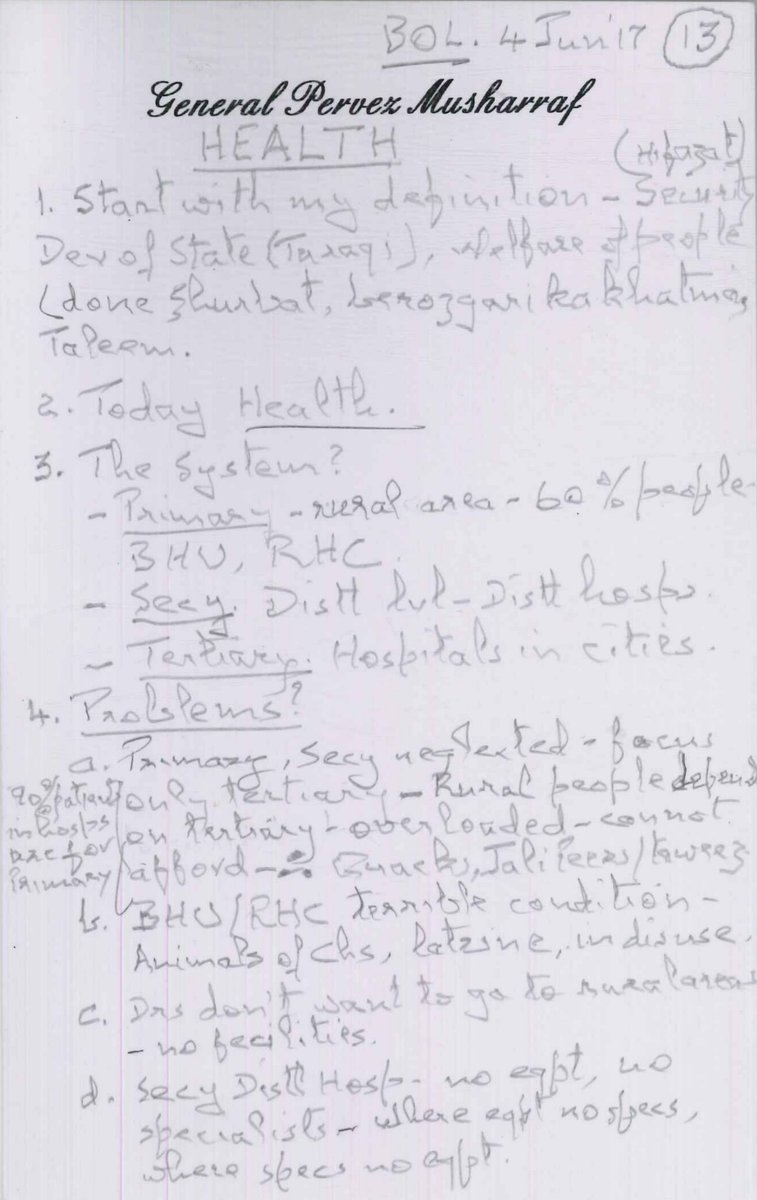 BOL. 4 Jun'17 13
General Pervez Musharraf
HEALTH
(Hifazat)
1. Start with my definition - Security
Dev of State (Taraqi), Welfare of people
(done Ghurbat, berozgari ka khatma,
Taleem.
2. Today Health.
3. The System?
- Primary - rural area - 60% people
BHU, RHC.
- Secy. Distt lvl - Distt hosps.
- Tertiary. Hospitals in cities.
4. Problems?
a. Primary, Secy neglected - focus
only tertiary - Rural people depend
on tertiary - overloaded - cannot
afford - Quacks, Jali Peers/taweez
90% patients
in hosps
are for
Primary
b. BHU/RHC terrible condition -
Animals of Chs, latrine, in disuse.
c. Drs don't want to go to rural areas
- no facilities.
d. Secy Distt Hosp - no eqpt, no
specialists - where eqpt no specs,
where specs no eqpt.